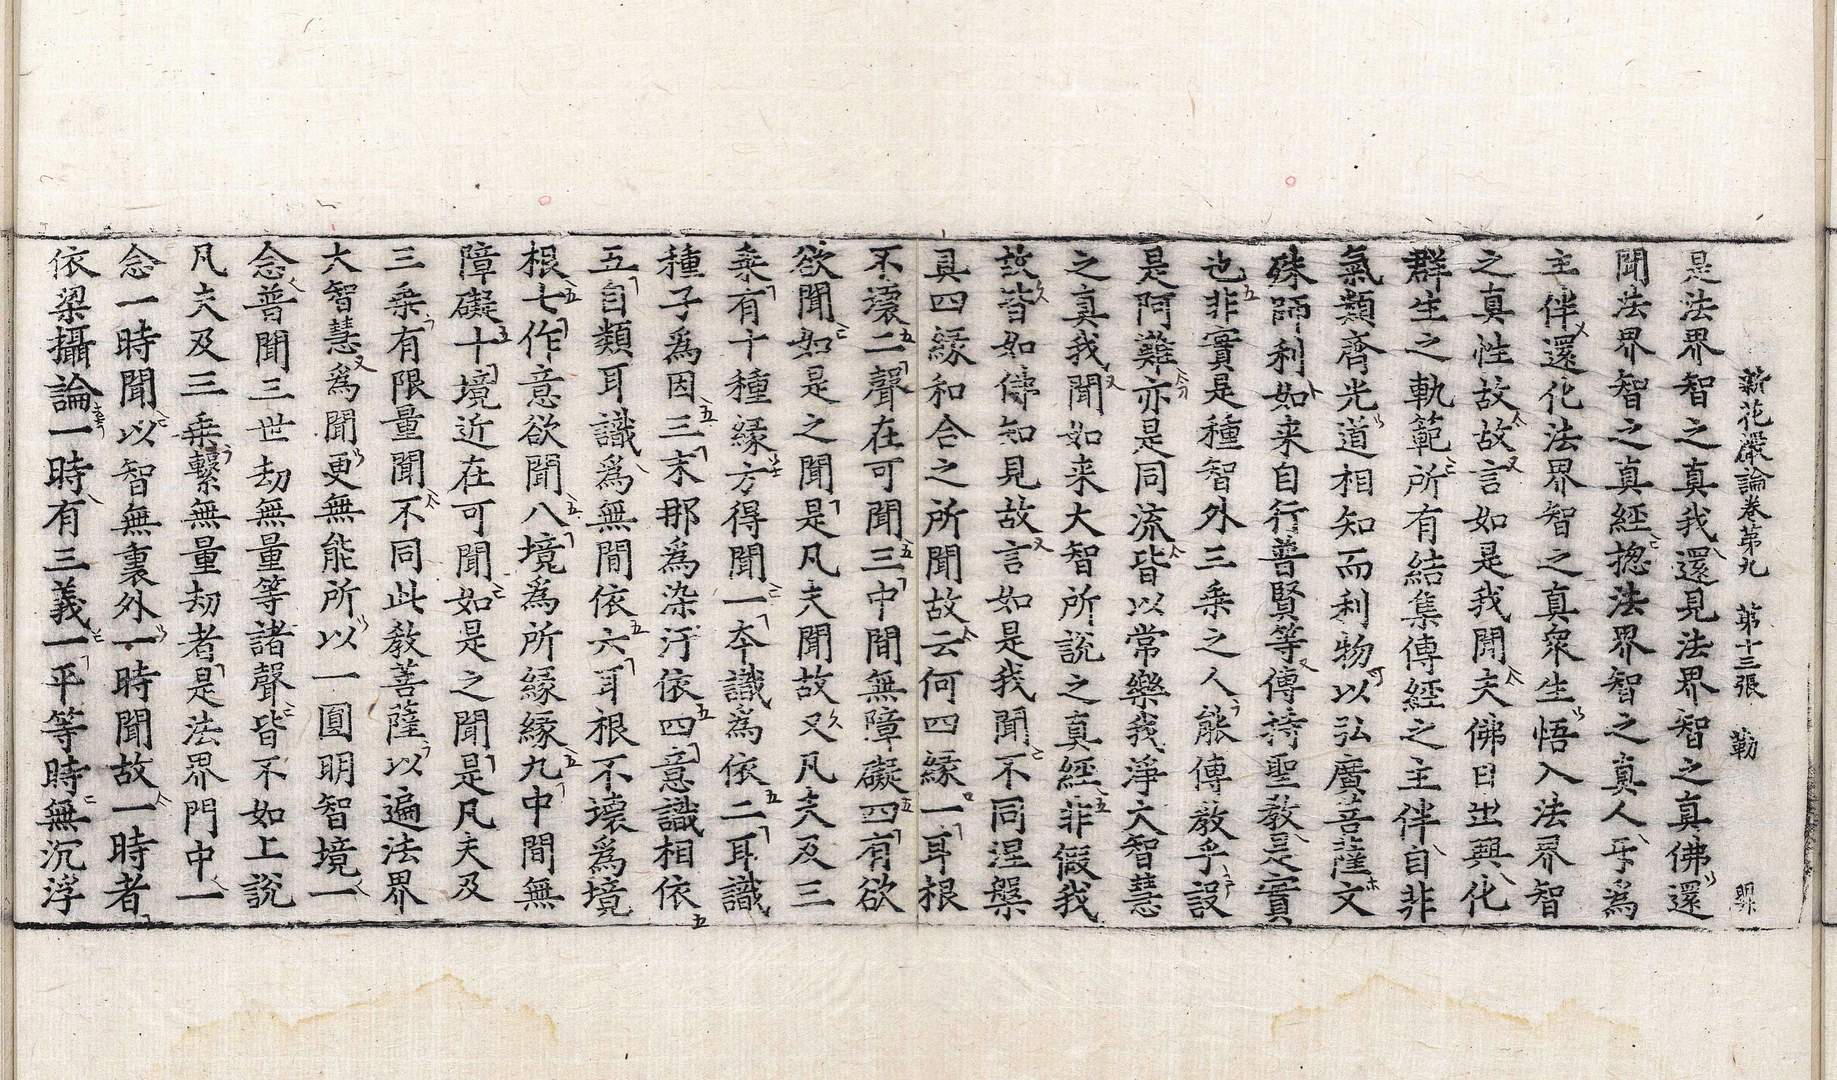 新花嚴論卷第九 第十三張 勒
是法界智之真我還見法界智之真佛還
聞法界智之真經揔法界智之真人乎為
主伴還化法界智之真衆生悟入法界智
之真性故故言如是我聞夫佛日出興化
群生之軌範所有結集傳經之主伴自非
氣類齊光道相知而利物以弘廣菩薩文
殊師利如来自行普賢等傳持聖教是實
也非實是種智外三乗之人能傳教乎設
是阿難亦是同流皆以常樂我淨大智慧
之真我聞如来大智所說之真經非假我
故皆如佛知見故言如是我聞不同涅槃
具四緣和合之所聞故云何四緣一耳根
不壞二聲在可聞三中間無障礙四有欲
欲聞如是之聞是凡夫聞故又凡夫及三
乗有十種緣方得聞一夲識為依二耳識
種子為因三末那為染汙依四意識相依
五自類耳識為無間依六耳根不壞為境
根七作意欲聞八境為所緣緣九中間無
障礙十境近在可聞如是之聞是凡夫及
三乗有限量聞不同此教菩薩以遍法界
大智慧為聞更無能所以一圓明智境一
念普聞三世劫無量等諸聲皆不如上說
凡夫及三乗繫無量劫者是法界門中一
念一時聞以智無裏外一時聞故一時者
依梁攝論一時有三義一平等時無沉浮